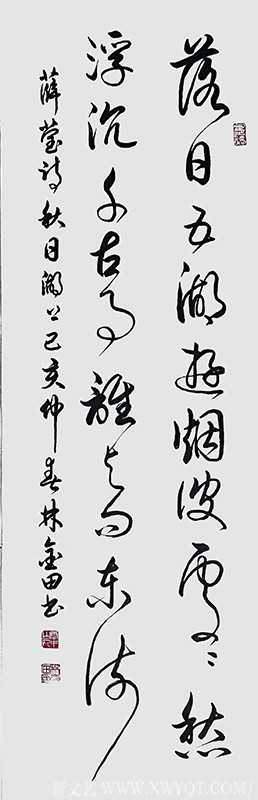 落日五湖游烟波处处愁
浮沉千古事谁与问东流
薛莹诗秋日湖上己亥仲春林金田书
新文艺 WWW.XWYQT.COM